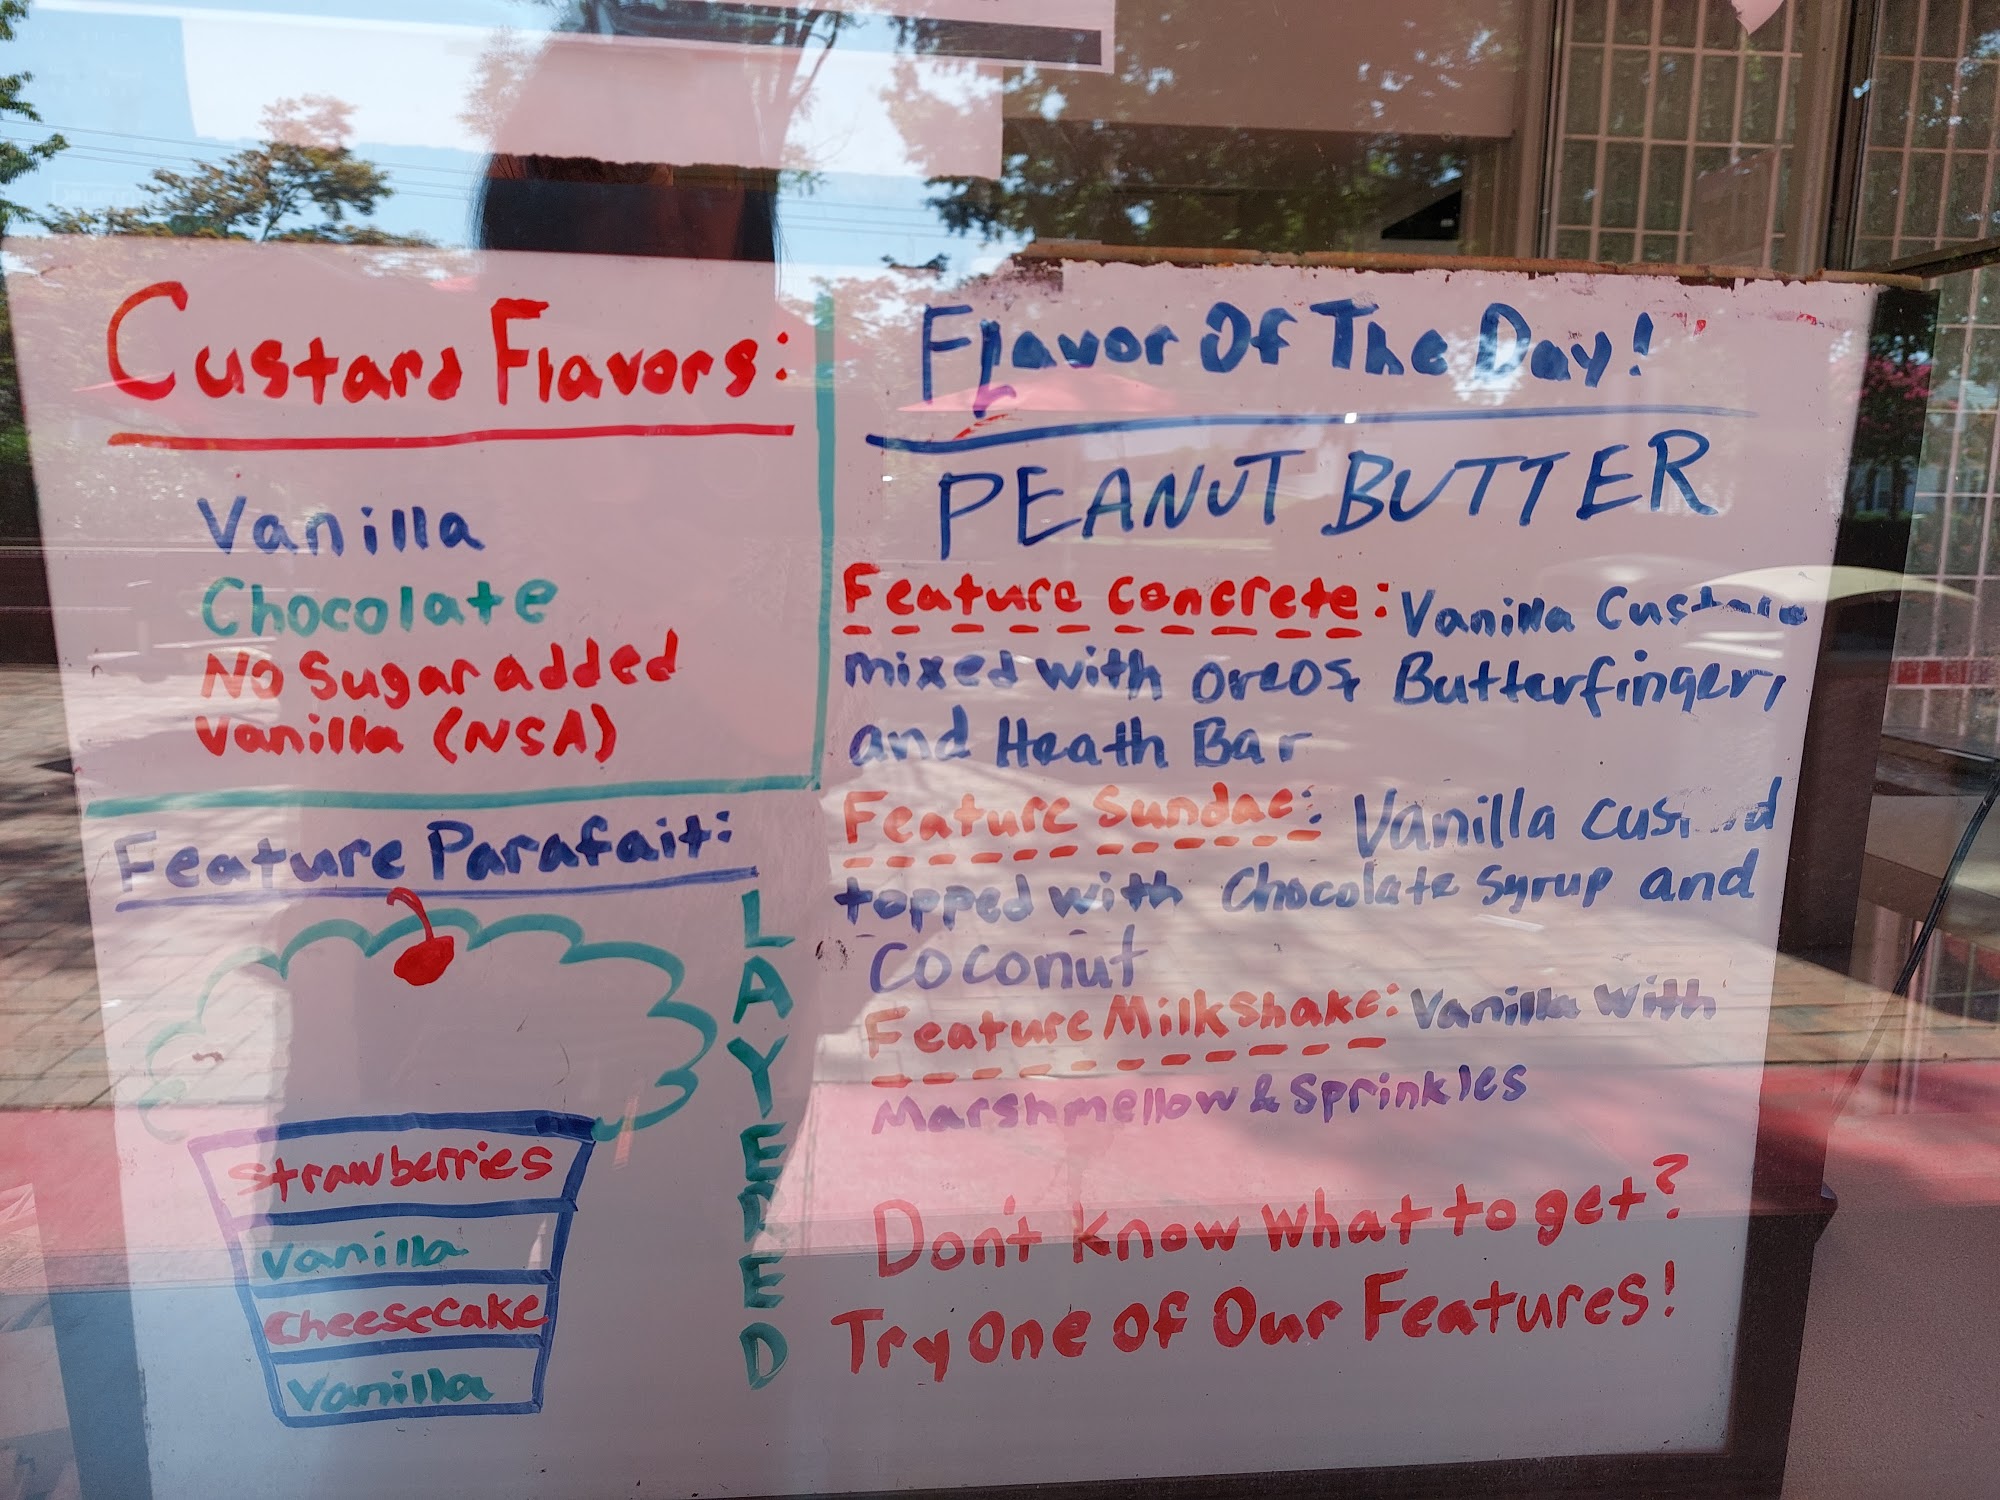 Custard Flavors:
Vanilla
Chocolate
No Sugar added
Vanilla (NSA)
Feature Parafait:
LAYERED
Strawberries
Vanilla
Cheesecake
Vanilla
Flavor Of The Day!
PEANUT BUTTER
Feature Concrete: Vanilla Custard
mixed with Oreos, Butterfinger,
and Heath Bar
Feature Sundae: Vanilla Custard
topped with Chocolate Syrup and
Coconut
Feature Milkshake: Vanilla With
Marshmellow & Sprinkles
Don't Know What to get?
Try One Of Our Features!